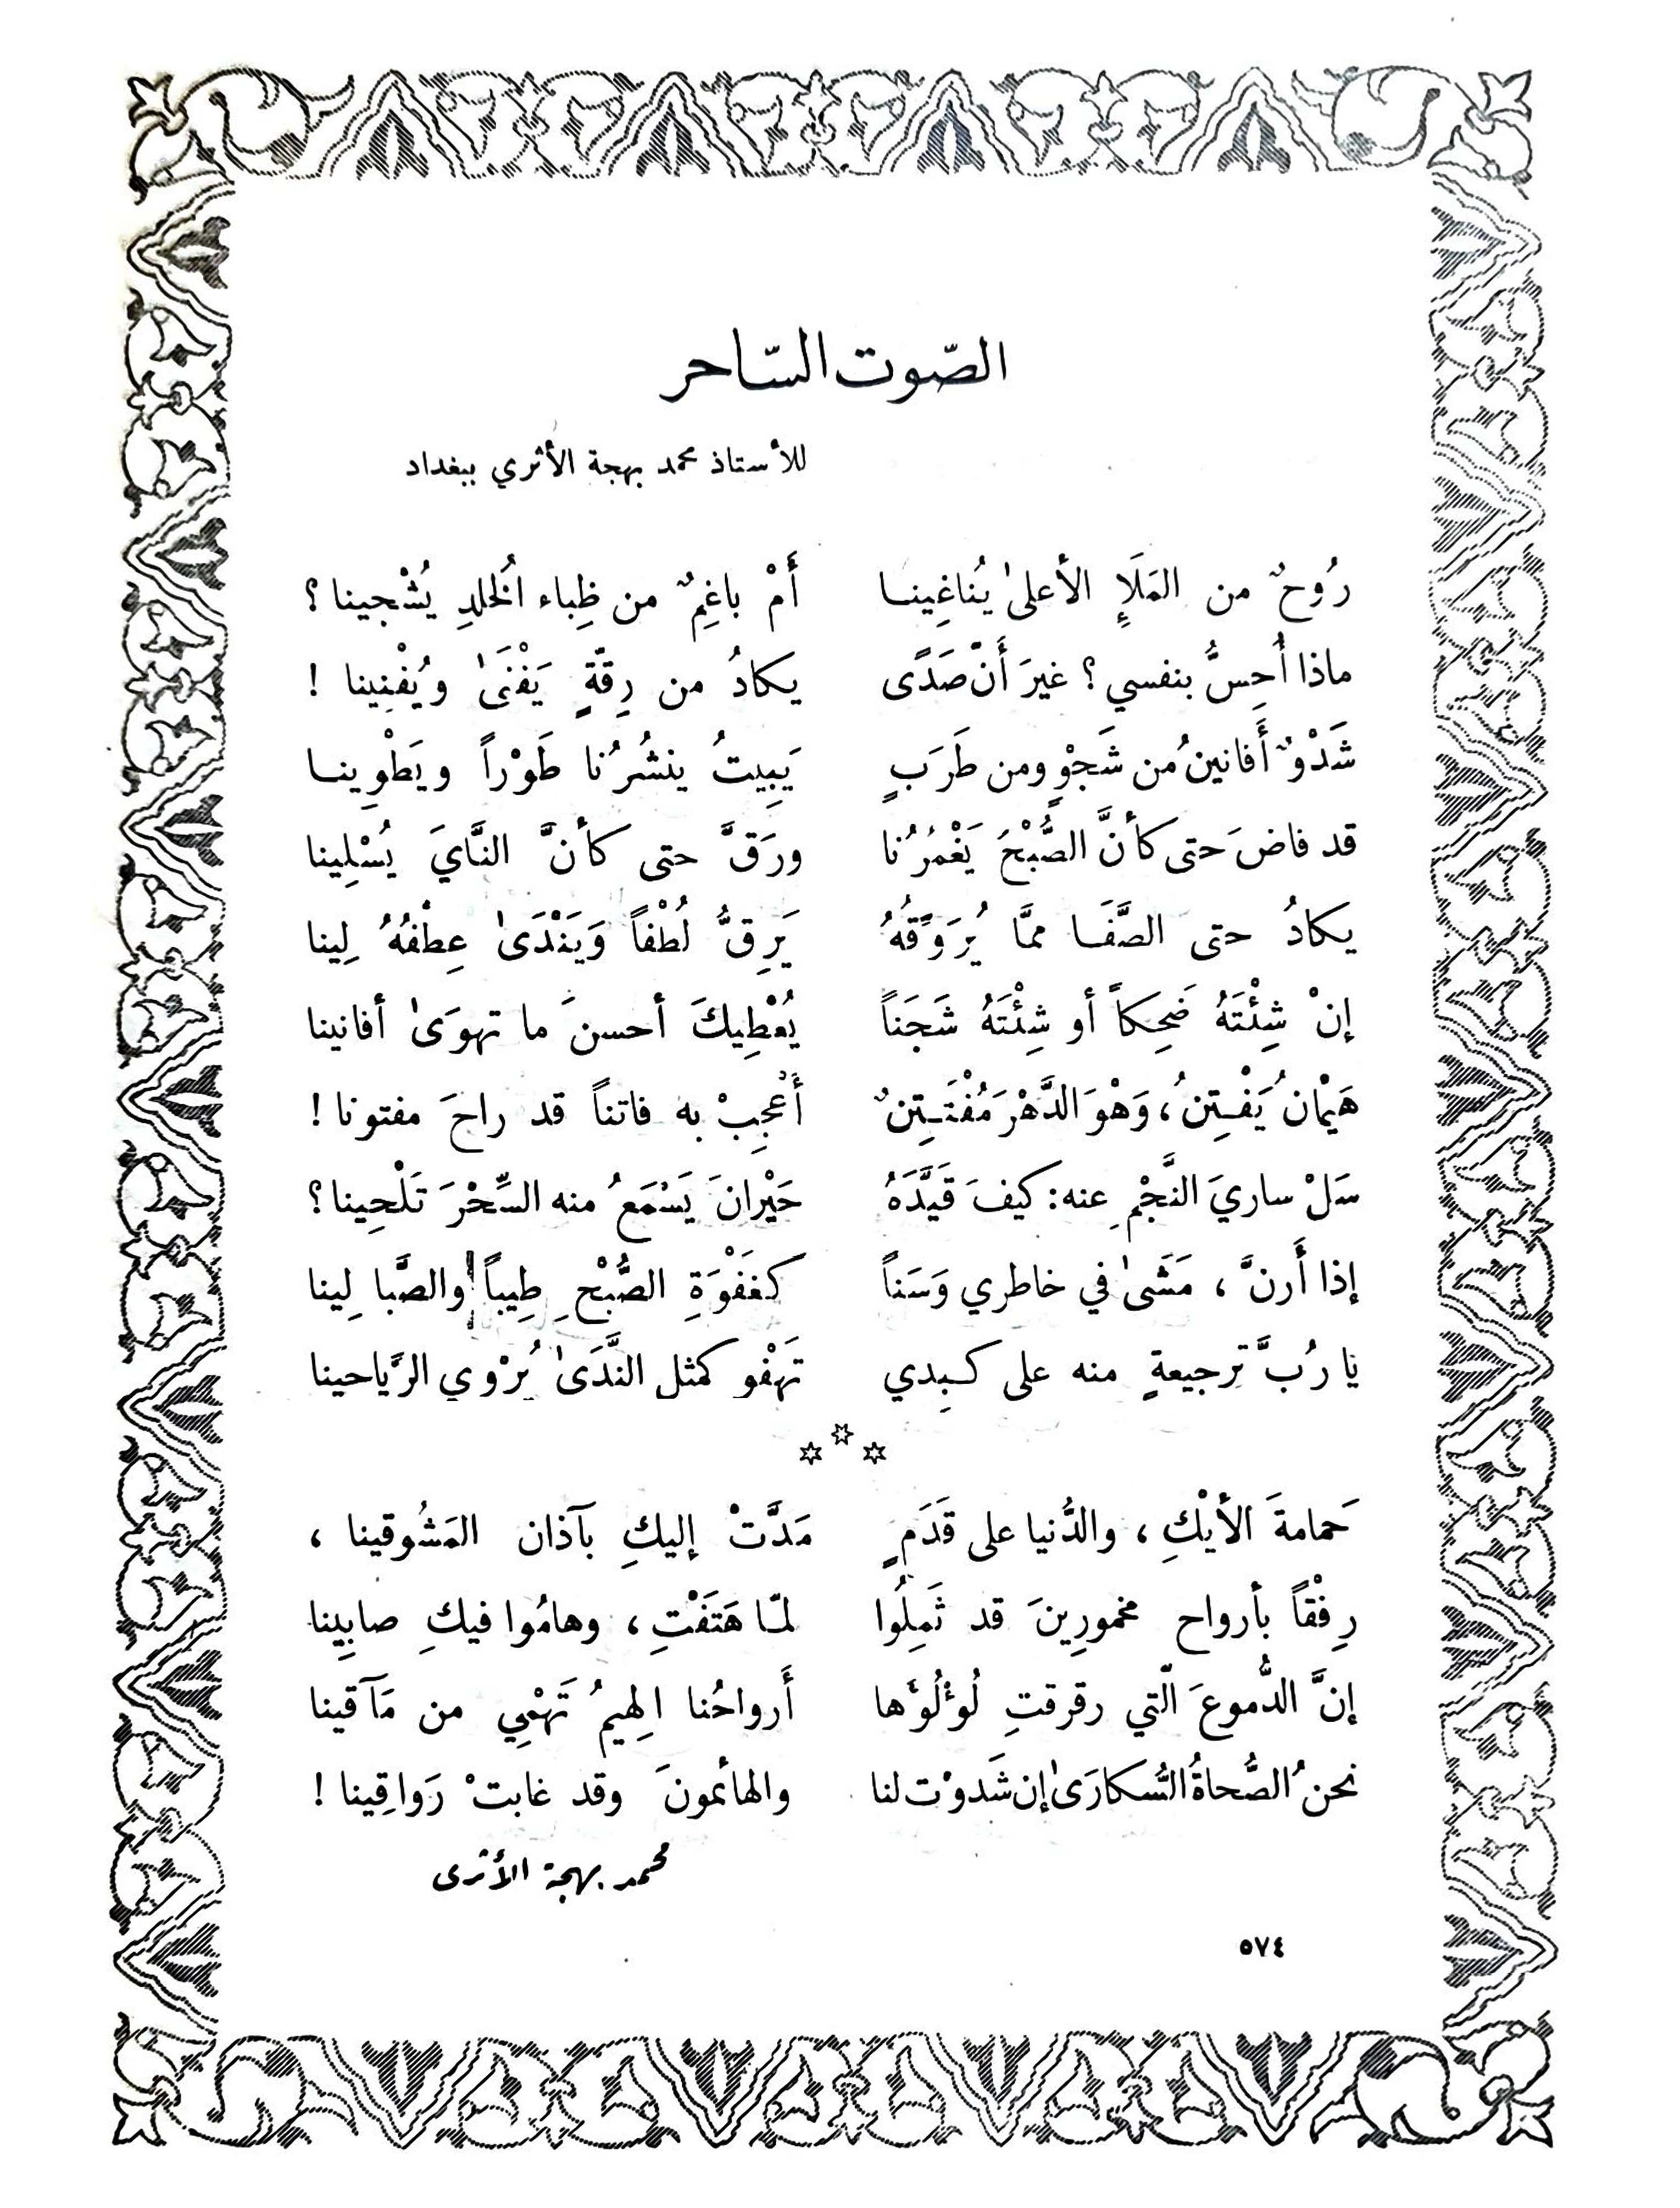 الصّوت السّاحر
للأستاذ محمد بهجة الأثري ببغداد
رُوحٌ من المَلَإِ الأعلىٰ يُناغِينا أَمْ باغِمٌ من ظِباء الخُلدِ يُشْجينا ؟
ماذا أُحِسُّ بنفسي ؟ غيرَ أَنّ صَدًى يكادُ من رِقّةٍ يَفْنَىٰ ويُفْنِينا !
شَدْوٌ أَفانينُ من شَجْوٍ ومن طَرَبٍ يَبِيتُ ينشُرُنا طَوْراً ويَطْوِينا
قد فاضَ حتى كأنَّ الصُّبْحَ يَغْمُرُنا ورَقَّ حتى كأنَّ النَّايَ يُسْلِينا
يكادُ حتى الصَّفَا ممَّا يُرَوِّقُهُ يَرِقُّ لُطْفاً وَيَنْدَىٰ عِطْفُهُ لِينا
إنْ شِئْتَهُ ضَحِكاً أو شِئْتَهُ شَجَناً يُعْطِيكَ أحسنَ ما تهوَىٰ أفانينا
هَيْمانُ يَفْتِنُ، وَهْوَ الدَّهْرَ مُفْتَتِنٌ أَعْجِبْ به فاتناً قد راحَ مفتونا !
سَلْ ساريَ النَّجْمِ عنه: كيفَ قَيَّدَهُ حَيْرانَ يَسْمَعُ منه السِّحْرَ تَلْحِينا ؟
إذا أَرنَّ ، مَشَىٰ في خاطري وَسَناً كغَفْوَةِ الصُّبْحِ طِيباً والصَّبا لِينا
يا رُبَّ ترجيعةٍ منه على كبِدي تَهْفو كمثل النَّدَىٰ يُرْوي الرَّياحينا
حَمامةَ الأيْكِ ، والدُّنيا على قَدَمٍ مَدَّتْ إليكِ بآذان المَشُوقينا ،
رِفْقاً بأرواح مخمورِينَ قد ثَمِلُوا لمّا هَتَفْتِ ، وهامُوا فيكِ صابِينا
إنَّ الدُّموعَ الّتي رقرقتِ لُؤْلُؤَها أَرواحُنا الهِيمُ تَهْمِي من مَآقينا
نحنُ الصُّحاةُ السُّكارَىٰ إن شَدوْت لنا والهائمونَ وقد غابتْ رَواقِينا !
محمد بهجة الأثرى
٥٧٤